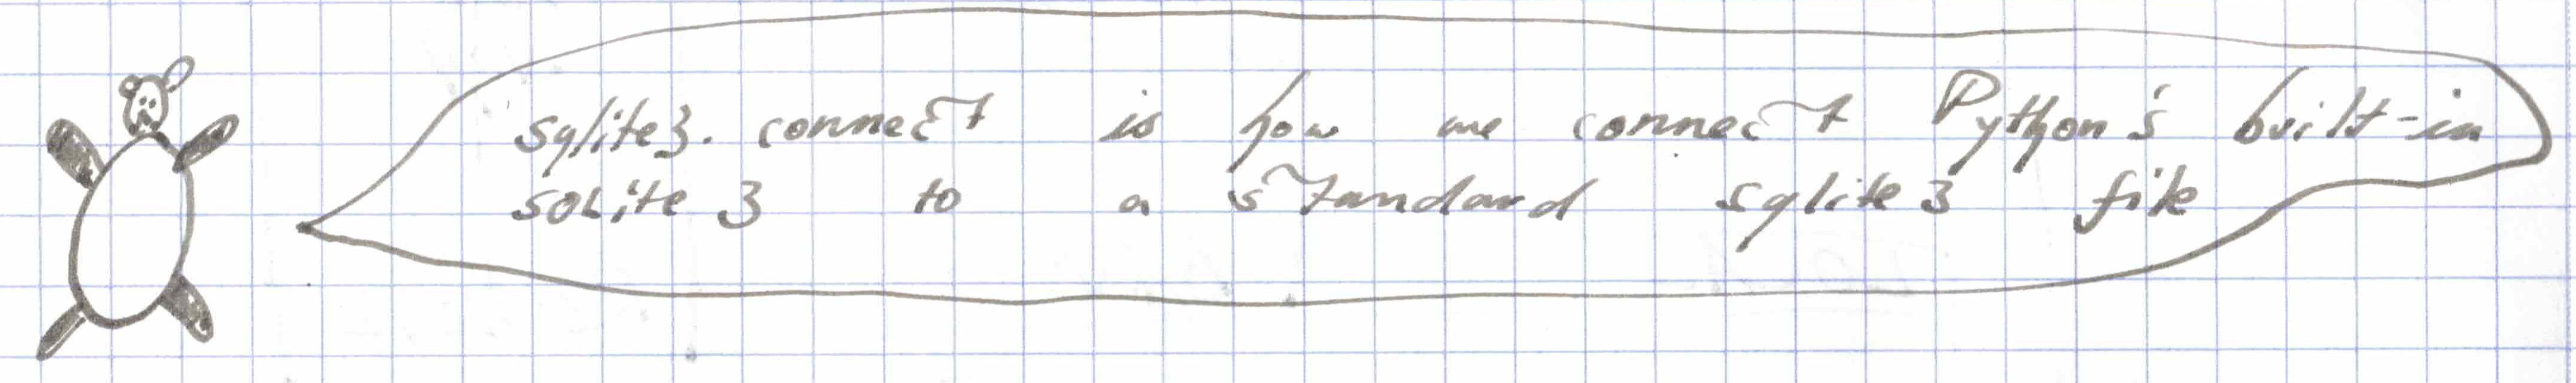 sqlite3.connect is how we connect Python's built-in
sqlite3 to a standard sqlite3 file